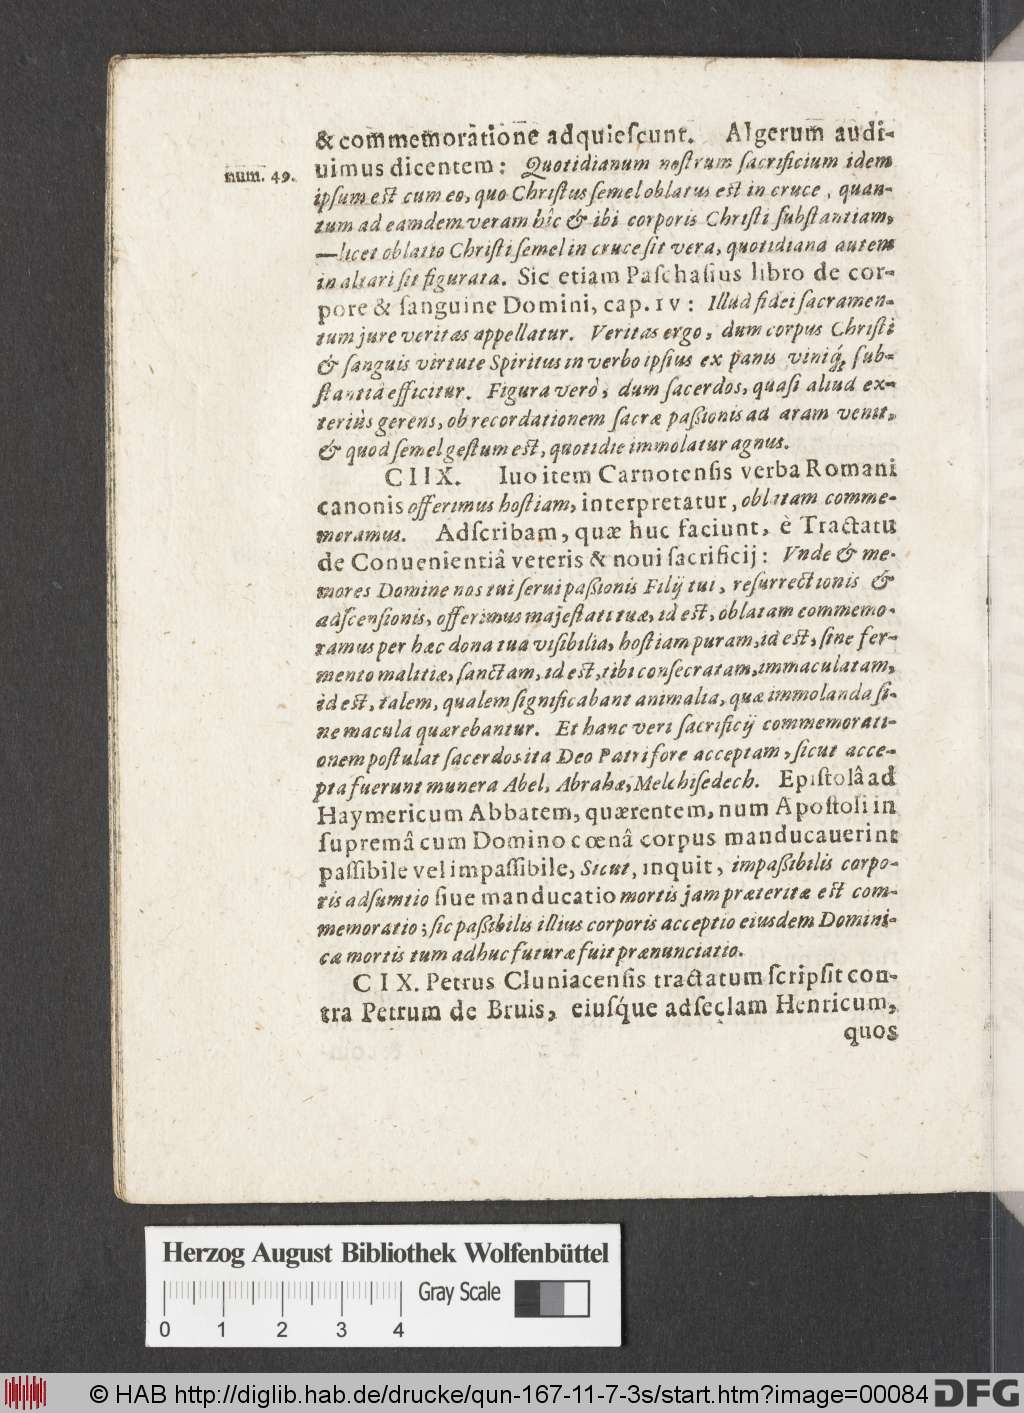 & commemoratione adquiescunt. Algerum audi-
num. 49.
uimus dicentem: Quotidianum nostrum sacrificium idem
ipsum est cum eo, quo Christus semel oblatus est in cruce, quan-
tum ad eamdem veram hîc & ibi corporis Christi substantiam,
—licet oblatio Christi semel in cruce sit vera, quotidiana autem
in altari sit figurata. Sic etiam Paschasius libro de cor-
pore & sanguine Domini, cap. IV: Illud fidei sacramen-
tum jure veritas appellatur. Veritas ergo, dum corpus Christi
& sanguis virtute Spiritus in verbo ipsius ex panis viniq́; sub-
stantia efficitur. Figura verò, dum sacerdos, quasi aliud ex-
teriùs gerens, ob recordationem sacræ paßionis ad aram venit,
& quod semel gestum est, quotidie immolatur agnus.
CIIX. Iuo item Carnotensis verba Romani
canonis offerimus hostiam, interpretatur, oblatam comme-
moramus. Adscribam, quæ huc faciunt, è Tractatu
de Conuenientiâ veteris & noui sacrificij: Vnde & me-
mores Domine nos tui serui paßionis Filij tui, resurrectionis &
adscensionis, offerimus majestati tuæ, id est, oblatam commemo-
ramus per hæc dona tua visibilia, hostiam puram, id est, sine fer-
mento malitiæ, sanctam, id est, tibi consecratam, immaculatam,
id est, talem, qualem significabant animalia, quæ immolanda si-
ne macula quærebantur. Et hanc veri sacrificij commemorati-
onem postulat sacerdos ita Deo Patri fore acceptam, sicut acce-
pta fuerunt munera Abel, Abrahæ, Melchisedech. Epistolâ ad
Haymericum Abbatem, quærentem, num Apostoli in
supremâ cum Domino cœnâ corpus manducauerint
passibile vel impassibile, Sicut, inquit, impaßibilis corpo-
ris adsumtio siue manducatio mortis jam præteritæ est com-
memoratio; sic paßibilis illius corporis acceptio eiusdem Domini-
cæ mortis tum adhuc futuræ fuit prænunciatio.
CIX. Petrus Cluniacensis tractatum scripsit con-
tra Petrum de Bruis, eiusq́ue adseclam Henricum,
quos
Herzog August Bibliothek Wolfenbüttel
Gray Scale
0 1 2 3 4
© HAB http://diglib.hab.de/drucke/qun-167-11-7-3s/start.htm?image=00084
DFG